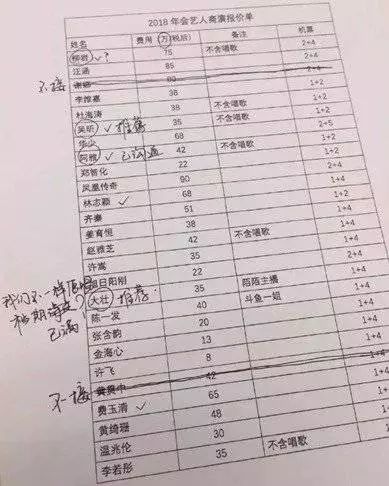 2018 年会艺人商演报价单
姓名 费用 万(税后) 备注 机票
柳岩 ✓? 75 不含唱歌 2+4
汪涵 85 2+4
不接 谢娜 80 2+4
李维嘉 38 1+2
杜海涛 38 不含唱歌 1+2
吴昕 ✓ 推荐 35 不含唱歌 1+2
华少 68 2+5
阿雅 ✓ 已沟通 42 不含唱歌 1+2
郑智化 22 2+4
凤凰传奇 90 1+4
林志颖 ✓ 68 1+2
齐秦 51 1+2
姜育恒 38 1+2
赵雅芝 42 不含唱歌 1+2
许嵩 35 1+4
旭日阳刚 22 1+4
大壮 推荐 35 陌陌主播 1+4
已满
陈一发 40 斗鱼一姐 1+4
张含韵 20 1+4
金海心 13 1+4
许飞 8 1+4
不接 黄贯中 42 1+4
费玉清 ✓ 65 1+4
黄绮珊 48 1+4
温兆伦 30 1+4
李若彤 35 不含唱歌 1+4